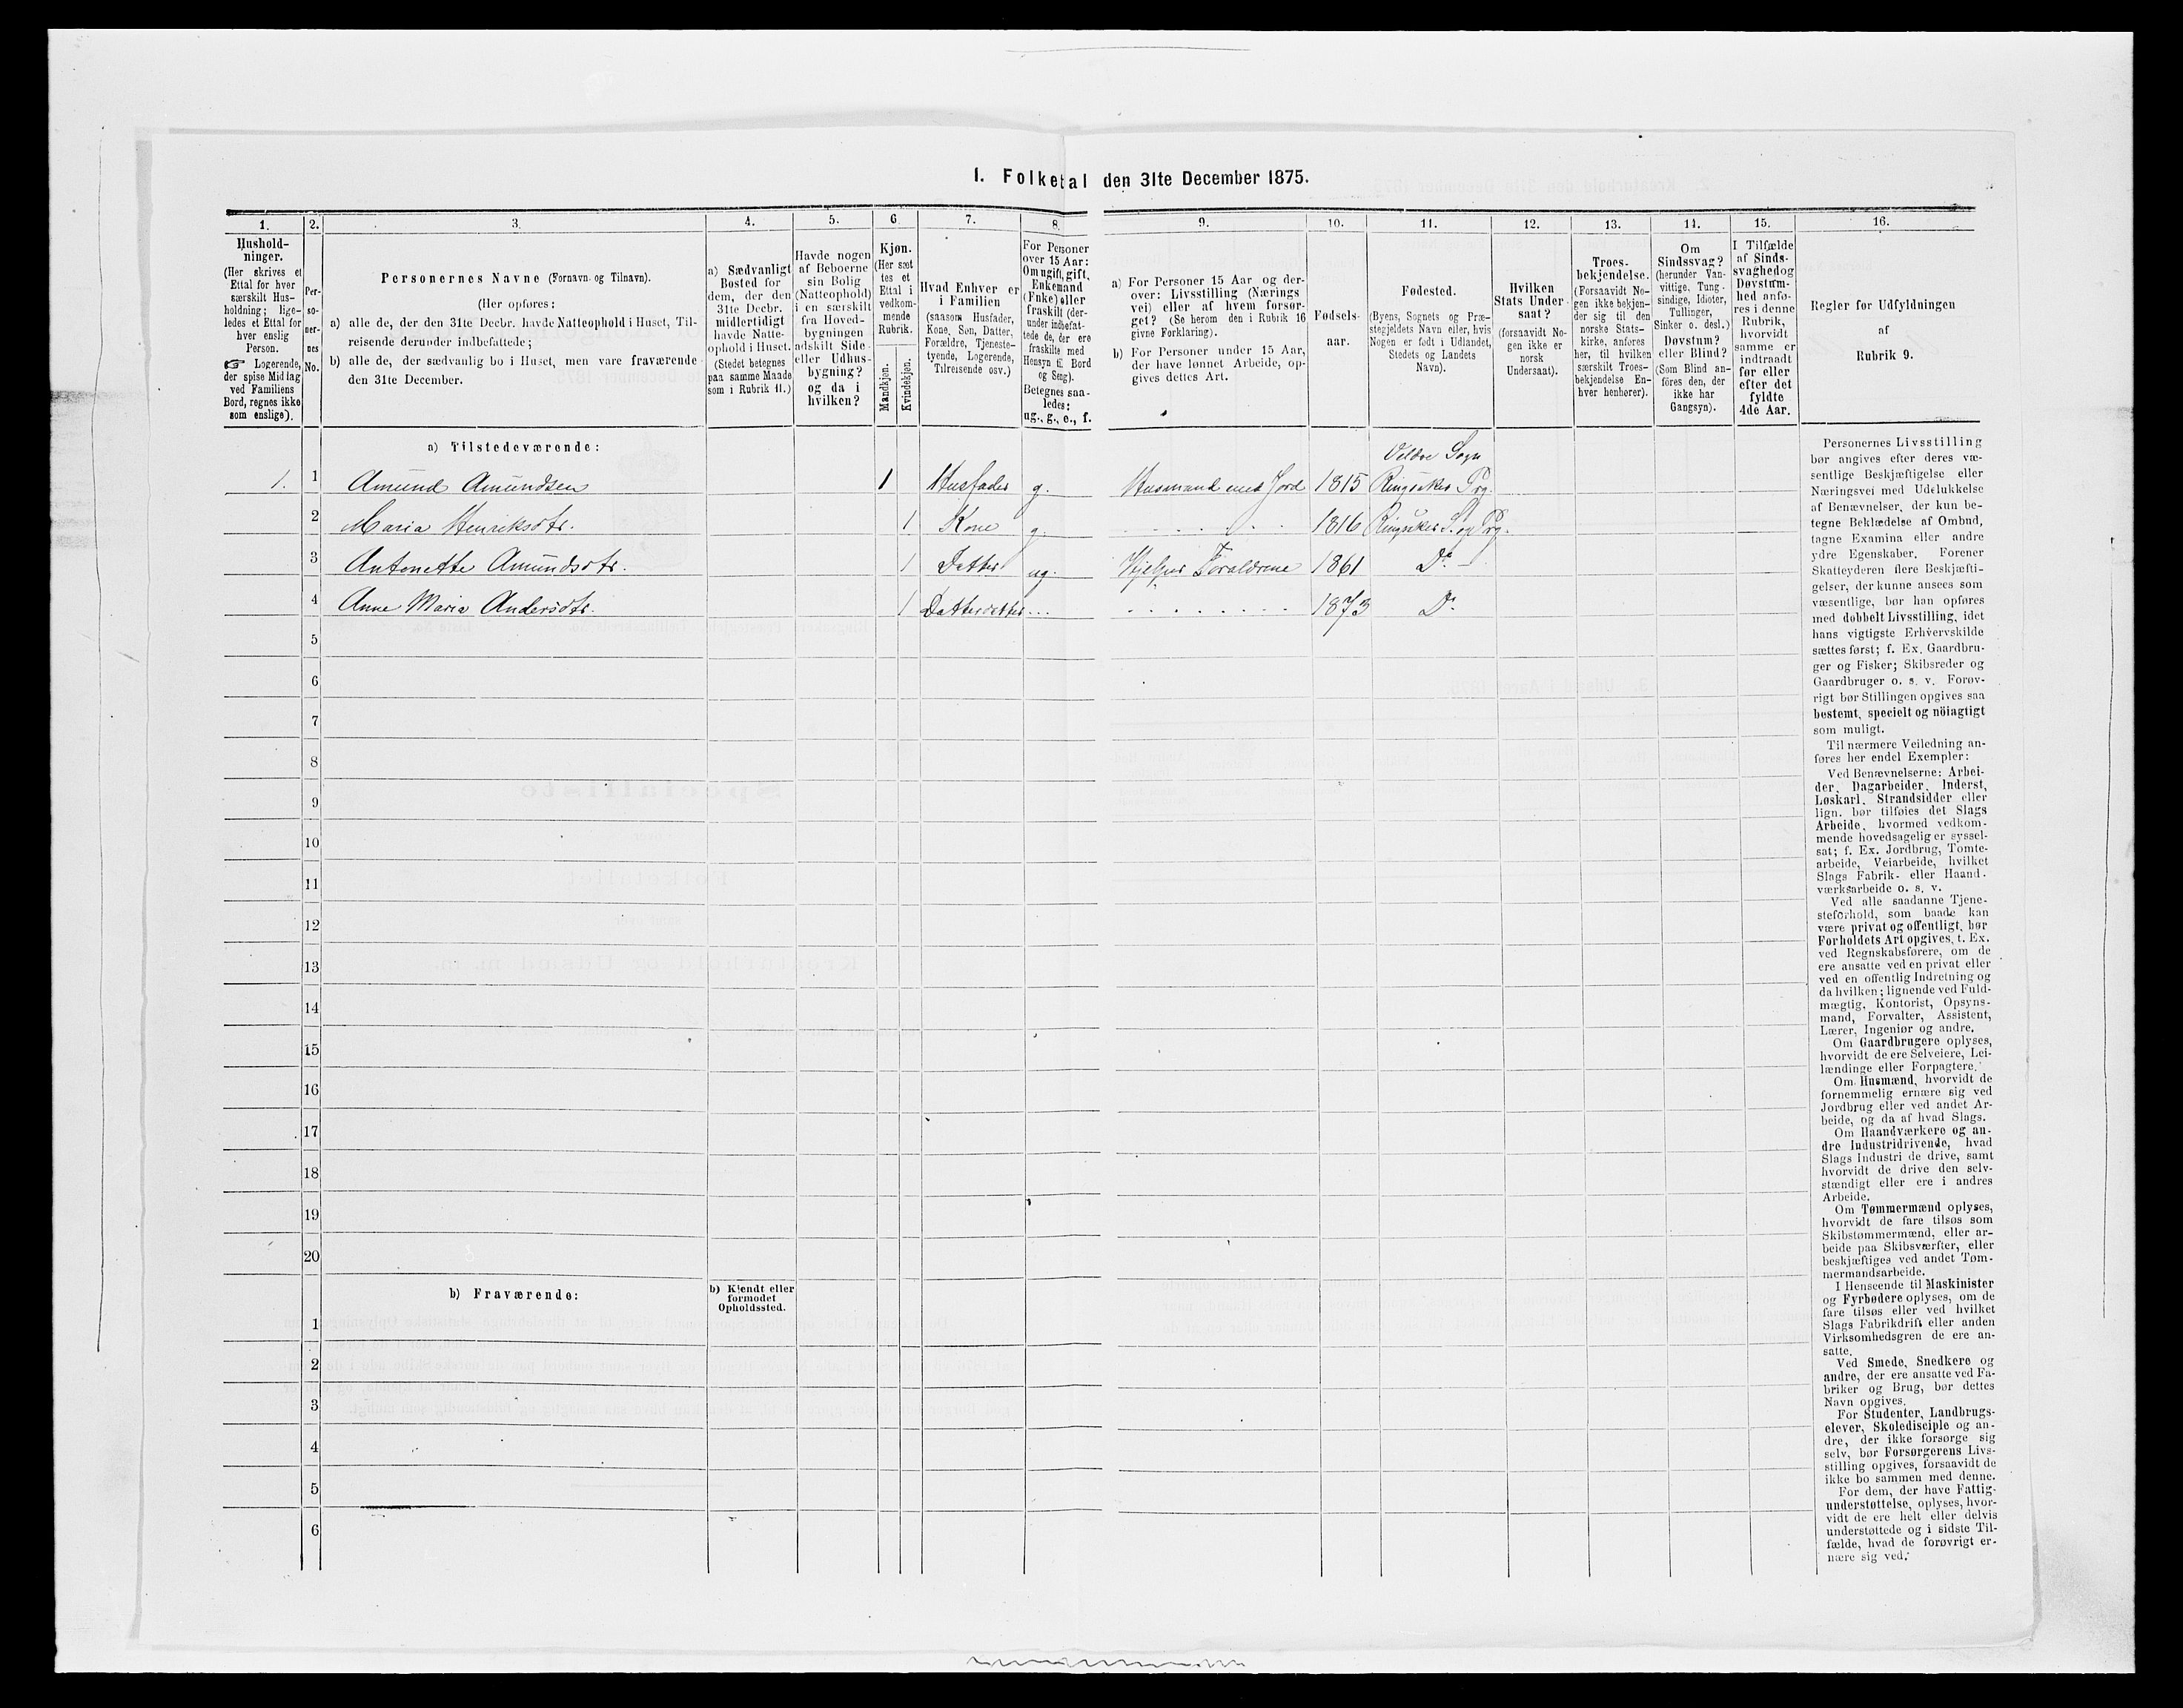 1. Folketal den 31te December 1875.
1. 2. 3. 4. 5. 6 7. 8. 9. 10. 11. 12. 13. 14. 15. 16.
Hushold-
ninger.
(Her skrives et
Ettal for hver
særskilt Hus-
holdning; lige-
ledes et Ettal for
hver enslig
Person.
☞ Logerende,
der spise Middag
ved Familiens
Bord, regnes ikke
som enslige).
Per-
so-
ner-
nes
No.
Personernes Navne (Fornavn og Tilnavn).
(Her opføres:
a) alle de, der den 31te Decbr. havde Natteophold i Huset, Til-
reisende derunder indbefattede;
b) alle de, der sædvanlig bo i Huset, men vare fraværende
den 31te December.
a) Sædvanligt
Bosted for
dem, der den
31te Decbr.
midlertidigt
havde Natte-
ophold i Huset.
(Stedet betegnes
paa samme Maade
som i Rubrik 11.)
Havde nogen
af Beboerne
sin Bolig
(Natteophold)
i en særskilt
fra Hoved-
bygningen
adskilt Side-
eller Udhus-
bygning?
og da i
hvilken?
Kjøn.
(Her sæt
tes et
Ettal i
vedkom-
mende
Rubrik.
Mandkjøn.
Kvindekjøn.
Hvad Enhver er
i Familien
(saasom Husfader,
Kone, Søn, Datter,
Forældre, Tjeneste-
tyende, Logerende,
Tilreisende osv.)
For Personer
over 15 Aar:
Om ugift, gift,
Enkemand
(Enke) eller
fraskilt (der-
under indbefat-
tede de, der ere
fraskilte med
Hensyn til Bord
og Seng).
Betegnes saa-
ledes:
ug., g., e., f.
a) For Personer 15 Aar og der-
over: Livsstilling (Nærings
vei) eller af hvem forsør-
get? (Se herom den i Rubrik 16
givne Forklaring).
b) For Personer under 15 Aar,
der have lønnet Arbeide, op-
gives dettes Art.
Fødsels-
aar.
Fødested.
(Byens, Sognets og Præ-
stegjeldets Navn eller, hvis
Nogen er født i Udlandet,
Stedets og Landets
Navn).
Hvilken
Stats Under-
saat?
(forsaavidt No-
gen ikke er
norsk
Undersaat).
Troes-
bekjendelse.
(Forsaavidt No-
gen ikke bekjen-
der sig til den
norske Stats-
kirke, anføres
her, til hvilken
særskilt Troes-
bekjendelse En-
hver henhører).
Om
Sindssvag?
(herunder Van-
vittige, Tung-
sindige, Idioter,
Tullinger,
Sinker o. desl.)
Døvstum?
eller Blind?
(Som Blind an-
føres den, der
ikke har
Gangsyn).
I Tilfælde
af Sinds-
svaghed og
Døvstum-
hed anfø-
res i denne
Rubrik,
hvorvidt
samme er
indtraadt
før eller
efter det
fyldte
4de Aar.
Regler for Udfyldningen
af
Rubrik 9.
a) Tilstedeværende:
Veldre Sogn
1. 1 Amund Amundsen 1 Husfader g. Husmand med Jord 1815 Ringsaker Prg.
2 Maria Henriksdtr. 1 Kone g. 1816 Ringsaker S. og Prg.
3 Antonette Amundsdtr. 1 Datter ug. Hjelper Forældrene 1861 Do
4 Anne Maria Andersdtr. 1 Datterdatter 1873 Do
5
6
7
8
9
10
11
12
13
14
15
16
17
18
19
20
b) Fraværende:
b) Kjendt eller
formodet
Opholdssted.
1
2
3
4
5
6
Personernes Livsstilling
bør angives efter deres væ-
sentlige Beskjæftigelse eller
Næringsvei med Udelukkelse
af Benævnelser, der kun be-
tegne Beklædelse af Ombud,
tagne Examina eller andre
ydre Egenskaber. Forener
Skatteyderen flere Beskjæfti-
gelser, der kunne ansees som
væsentlige, bør han opføres
med dobbelt Livsstilling, idet
hans vigtigste Erhvervskilde
sættes først; f. Ex. Gaardbru-
ger og Fisker; Skibsreder og
Gaardbruger o. s. v. Forøv-
rigt bør Stillingen opgives saa
bestemt, specielt og nöiagtigt
som muligt.
Til nærmere Veiledning an-
føres her endel Exempler:
Ved Benævnelserne: Arbei-
der, Dagarbeider, Inderst,
Løskarl, Strandsidder eller
lign. bør tilføies det Slags
Arbeide, hvormed vedkom-
mende hovedsagelig er syssel-
sat; f. Ex. Jordbrug, Tomte-
arbeide, Veiarbeide, hvilket
Slags Fabrik- eller Haand-
værksarbeide o. s. v.
Ved alle saadanne Tjene-
steforhold, som baade kan
være privat og offentligt, bør
Forholdets Art opgives, t. Ex.
ved Regnskabsførere, om de
ere ansatte ved en privat eller
ved en offentlig Indretning og
da hvilken; lignende ved Fuld-
mægtig, Kontorist, Opsyns-
mand, Forvalter, Assistent,
Lærer, Ingeniør og andre.
Om Gaardbrugere oplyses,
hvorvidt de ere Selveiere, Lei-
lændinge eller Forpagtere.
Om Husmænd, hvorvidt de
fornemmelig ernære sig ved
Jordbrug eller ved andet Ar-
beide, og da af hvad Slags.
Om Haandværkere og an-
dre Industridrivende, hvad
Slags Industri de drive, samt
hvorvidt de drive den selv-
stændigt eller ere i andres
Arbeide.
Om Tømmermænd oplyses,
hvorvidt de fare tilsøs som
Skibstømmermænd, eller ar-
beide paa Skibsværfter, eller
beskjæftiges ved andet Tøm-
mermandsarbeide.
I Henseende til Maskinister
og Fyrbødere oplyses, om de
fare tilsøs eller ved hvilket
Slags Fabrikdrift eller anden
Virksomhedsgren de ere an-
satte.
Ved Smede, Snedkere og
andre, der ere ansatte ved Fa-
briker og Brug, bør dettes
Navn opgives.
For Studenter, Landbrugs-
elever, Skoledisciple og an-
dre, der ikke forsørge sig
selv, bør Forsørgerens Livs-
stilling opgives, forsaavidt de
ikke bo sammen med denne.
For dem, der have Fattig-
understøttelse, oplyses, hvor-
vidt de ere helt eller delvis
understøttede og i sidste Til-
fælde, hvad de forøvrigt er-
nære sig ved.